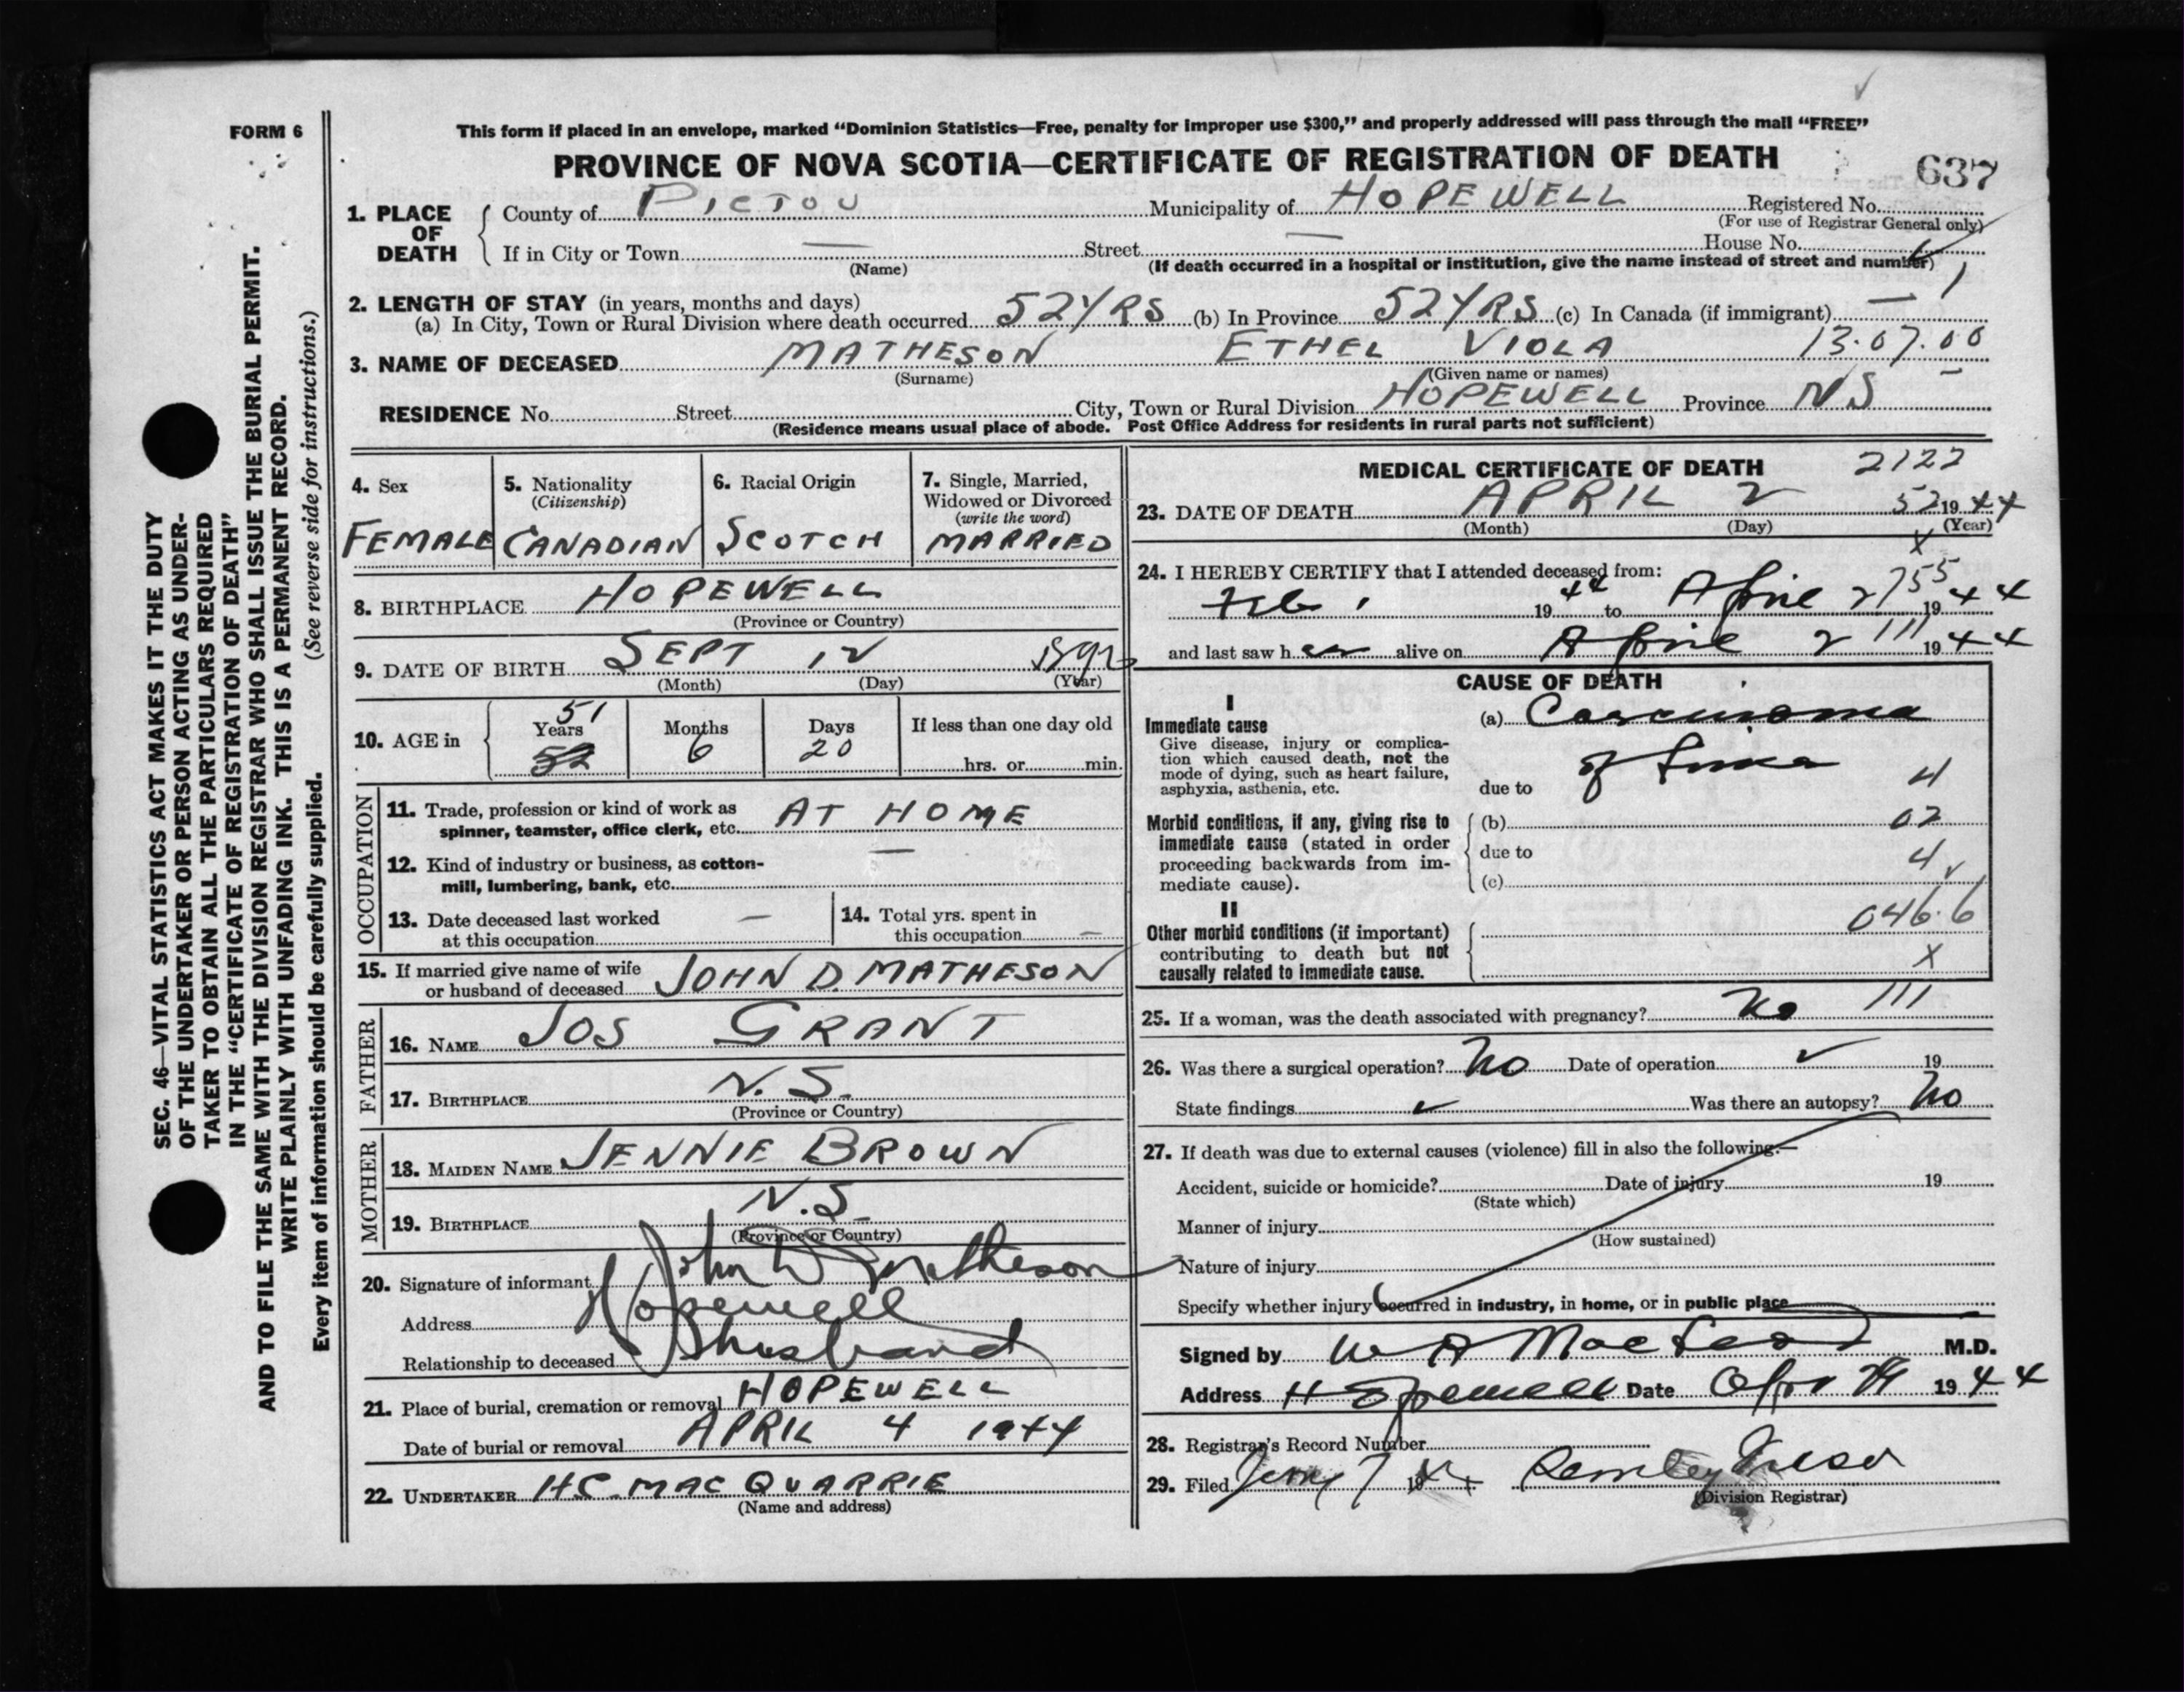 FORM 6
This form if placed in an envelope, marked “Dominion Statistics—Free, penalty for improper use $300,” and properly addressed will pass through the mail “FREE”
PROVINCE OF NOVA SCOTIA—CERTIFICATE OF REGISTRATION OF DEATH
637
1. PLACE OF DEATH
County of PICTOU Municipality of HOPEWELL Registered No.
(For use of Registrar General only)
If in City or Town — Street — House No.
(Name) (If death occurred in a hospital or institution, give the name instead of street and number)
2. LENGTH OF STAY (in years, months and days)
(a) In City, Town or Rural Division where death occurred 52 YRS (b) In Province 52 YRS (c) In Canada (if immigrant) —
3. NAME OF DECEASED MATHESON ETHEL VIOLA 13.07.00
(Surname) (Given name or names)
RESIDENCE No. Street City, Town or Rural Division HOPEWELL Province NS
(Residence means usual place of abode. Post Office Address for residents in rural parts not sufficient)
4. Sex
FEMALE
5. Nationality
(Citizenship)
CANADIAN
6. Racial Origin
SCOTCH
7. Single, Married,
Widowed or Divorced
(write the word)
MARRIED
8. BIRTHPLACE HOPEWELL
(Province or Country)
9. DATE OF BIRTH SEPT 12 1892
(Month) (Day) (Year)
10. AGE in
51
Years
52
Months
6
Days
20
If less than one day old
hrs. or min.
OCCUPATION
11. Trade, profession or kind of work as
spinner, teamster, office clerk, etc. AT HOME
12. Kind of industry or business, as cotton-
mill, lumbering, bank, etc. —
13. Date deceased last worked
at this occupation —
14. Total yrs. spent in
this occupation —
15. If married give name of wife
or husband of deceased JOHN D. MATHESON
FATHER
16. NAME JOS GRANT
17. BIRTHPLACE N.S.
(Province or Country)
MOTHER
18. MAIDEN NAME JENNIE BROWN
19. BIRTHPLACE N.S.
(Province or Country)
20. Signature of informant John D Matheson
Address Hopewell
Relationship to deceased husband
21. Place of burial, cremation or removal HOPEWELL
Date of burial or removal APRIL 4 1944
22. UNDERTAKER H.C. MAC QUARRIE
(Name and address)
MEDICAL CERTIFICATE OF DEATH 2122
23. DATE OF DEATH APRIL 2 52 1944
(Month) (Day) (Year)
X
24. I HEREBY CERTIFY that I attended deceased from:
Feb 1 1944 to April 2 755 1944
and last saw her alive on April 2 111 1944
CAUSE OF DEATH
I
Immediate cause
Give disease, injury or complica-
tion which caused death, not the
mode of dying, such as heart failure,
asphyxia, asthenia, etc.
(a) Carcinoma
of
due to 4
Morbid conditions, if any, giving rise to
immediate cause (stated in order
proceeding backwards from im-
mediate cause).
(b) 02
due to 4
(c)
II
Other morbid conditions (if important)
contributing to death but not
causally related to immediate cause.
046.6
X
25. If a woman, was the death associated with pregnancy? No 111
26. Was there a surgical operation? No Date of operation 19
State findings Was there an autopsy? No
27. If death was due to external causes (violence) fill in also the following:—
Accident, suicide or homicide? Date of injury 19
(State which)
Manner of injury
(How sustained)
Nature of injury
Specify whether injury occurred in industry, in home, or in public place
Signed by W A MacLeod M.D.
Address Hopewell Date Apr 1944
28. Registrar's Record Number
29. Filed 7 1944
(Division Registrar)
SEC. 46—VITAL STATISTICS ACT MAKES IT THE DUTY
OF THE UNDERTAKER OR PERSON ACTING AS UNDER-
TAKER TO OBTAIN ALL THE PARTICULARS REQUIRED
IN THE “CERTIFICATE OF REGISTRATION OF DEATH”
AND TO FILE THE SAME WITH THE DIVISION REGISTRAR WHO SHALL ISSUE THE BURIAL PERMIT.
WRITE PLAINLY WITH UNFADING INK. THIS IS A PERMANENT RECORD.
Every item of information should be carefully supplied. (See reverse side for instructions.)